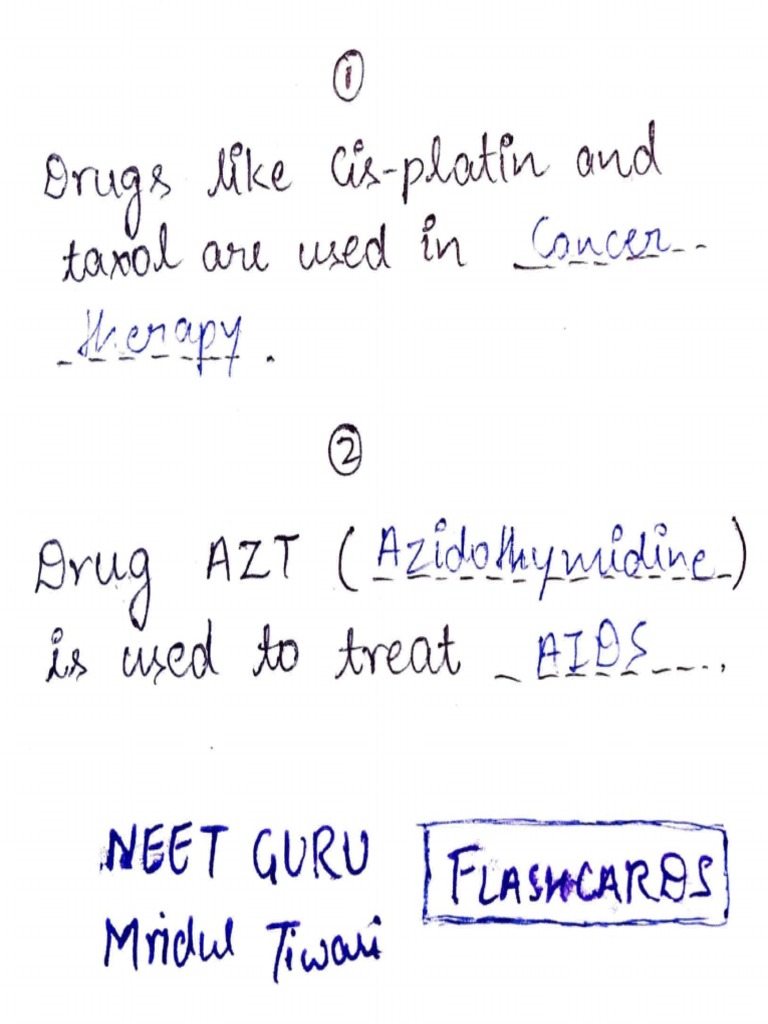 ①
Drugs like Cis-platin and
taxol are used in Cancer
therapy.
②
Drug AZT (Azidothymidine)
is used to treat AIDS.
NEET GURU
Mridul Tiwari
FLASHCARDS